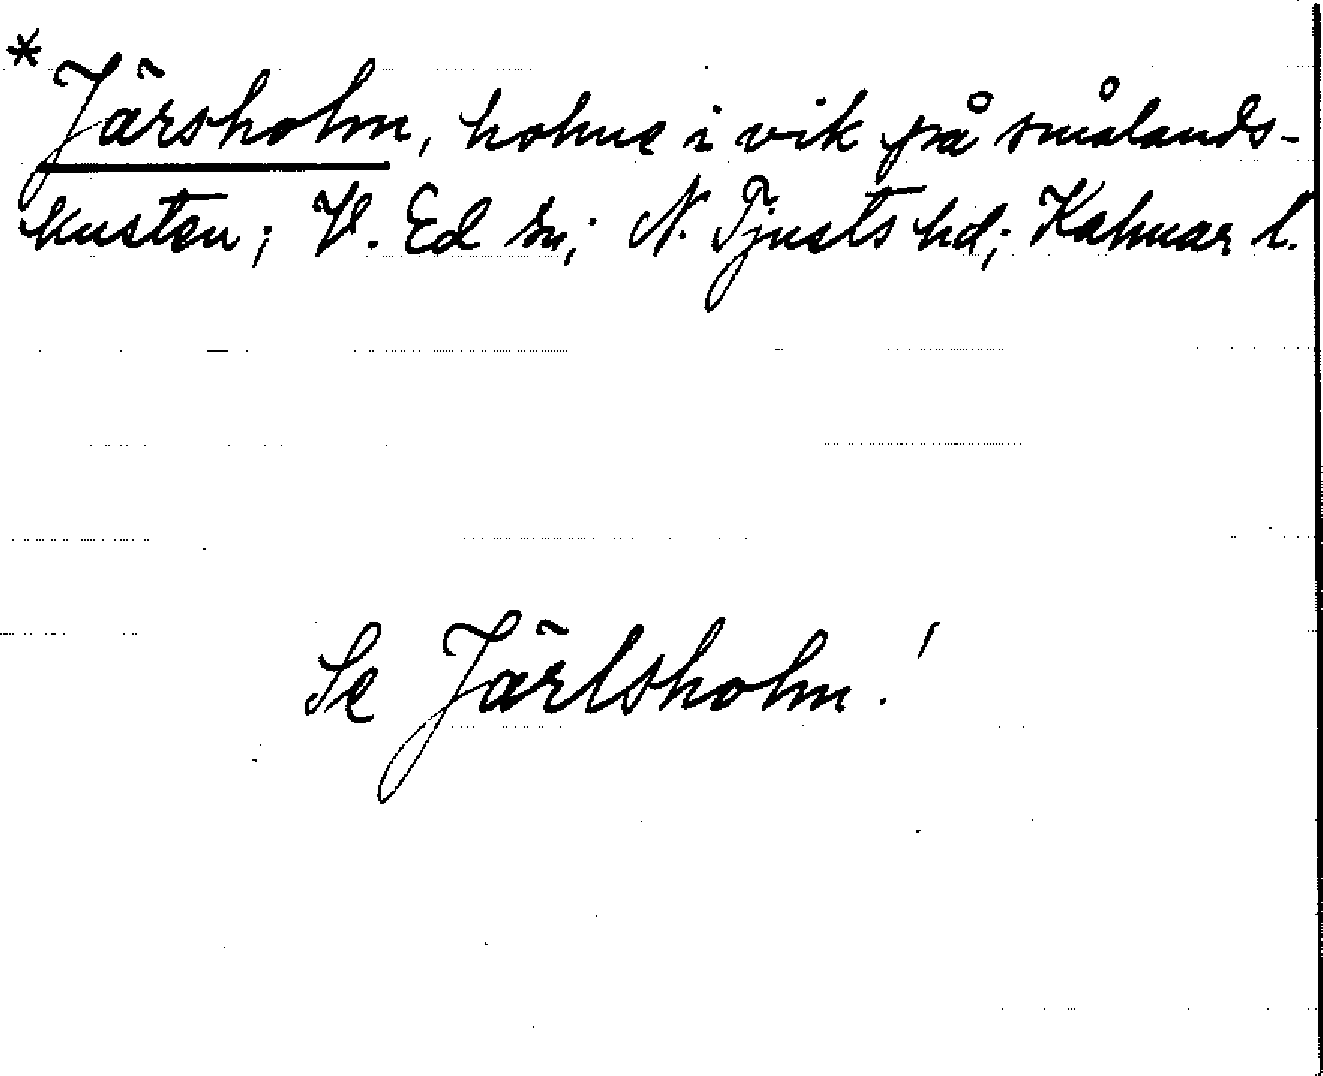 * Järsholm, holme i vik på smålands-
kusten; V. Ed sn; N. Tjusts hd; Kalmar l.
Se Järlsholm!